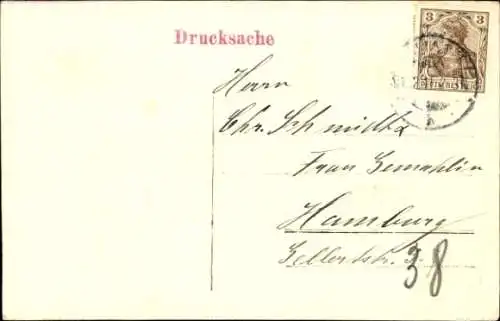 Drucksache
3 3
DEUTSCHES REICH
Herrn
Chr. Schmidt
Frau Gemahlin
Hamburg
Gellertstr.
38